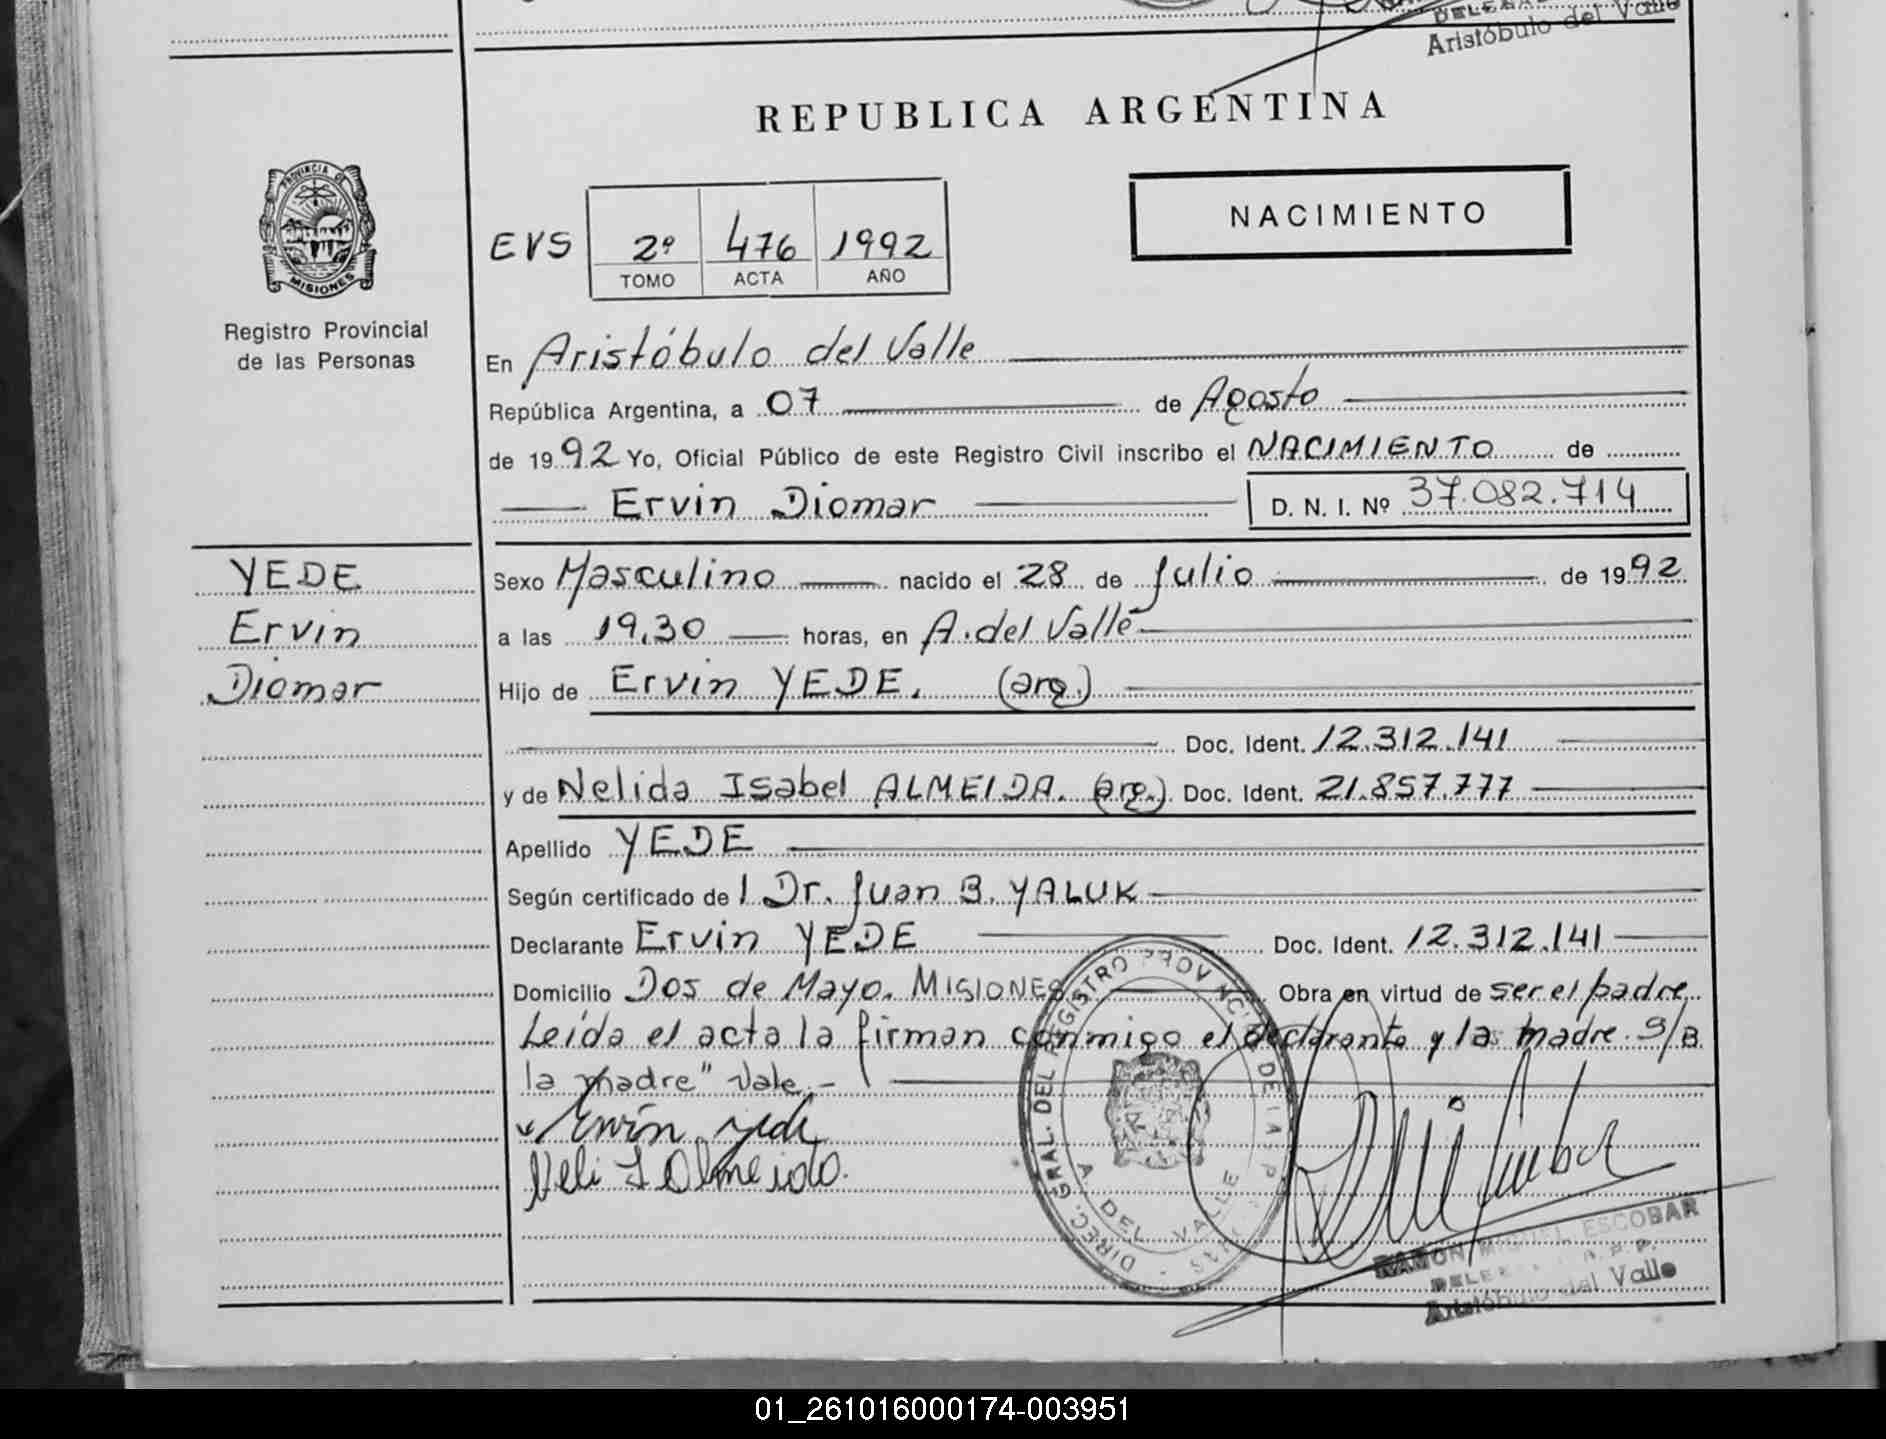 Aristóbulo del Valle
REPUBLICA ARGENTINA
PROVINCIA DE
MISIONES
Registro Provincial
de las Personas
EVS 2º 476 1992
TOMO ACTA AÑO
NACIMIENTO
En Aristóbulo del Valle
República Argentina, a 07 de Agosto
de 1992 Yo, Oficial Público de este Registro Civil inscribo el NACIMIENTO de
Ervin Diomar D. N. I. Nº 37.082.714
YEDE
Ervin
Diomar
Sexo Masculino nacido el 28 de Julio de 1992
a las 19,30 horas, en A. del Valle
Hijo de Ervin YEDE. (arg.)
Doc. Ident. 12.312.141
y de Nelida Isabel ALMEIDA. (arg.) Doc. Ident. 21.857.777
Apellido YEDE
Según certificado de l Dr. Juan B. YALUK
Declarante Ervin YEDE Doc. Ident. 12.312.141
Domicilio Dos de Mayo. MISIONES Obra en virtud de ser el padre
Leída el acta la firman conmigo el declarante y la madre. S/B
la madre" Vale.-
Ervin Yede
Neli I Almeida.
DIREC. GRAL. DEL REGISTRO PROVINCIAL DE LAS P
A DEL VALLE
RAMON MIGUEL ESCOBAR
Aristóbulo del Valle
01_261016000174-003951